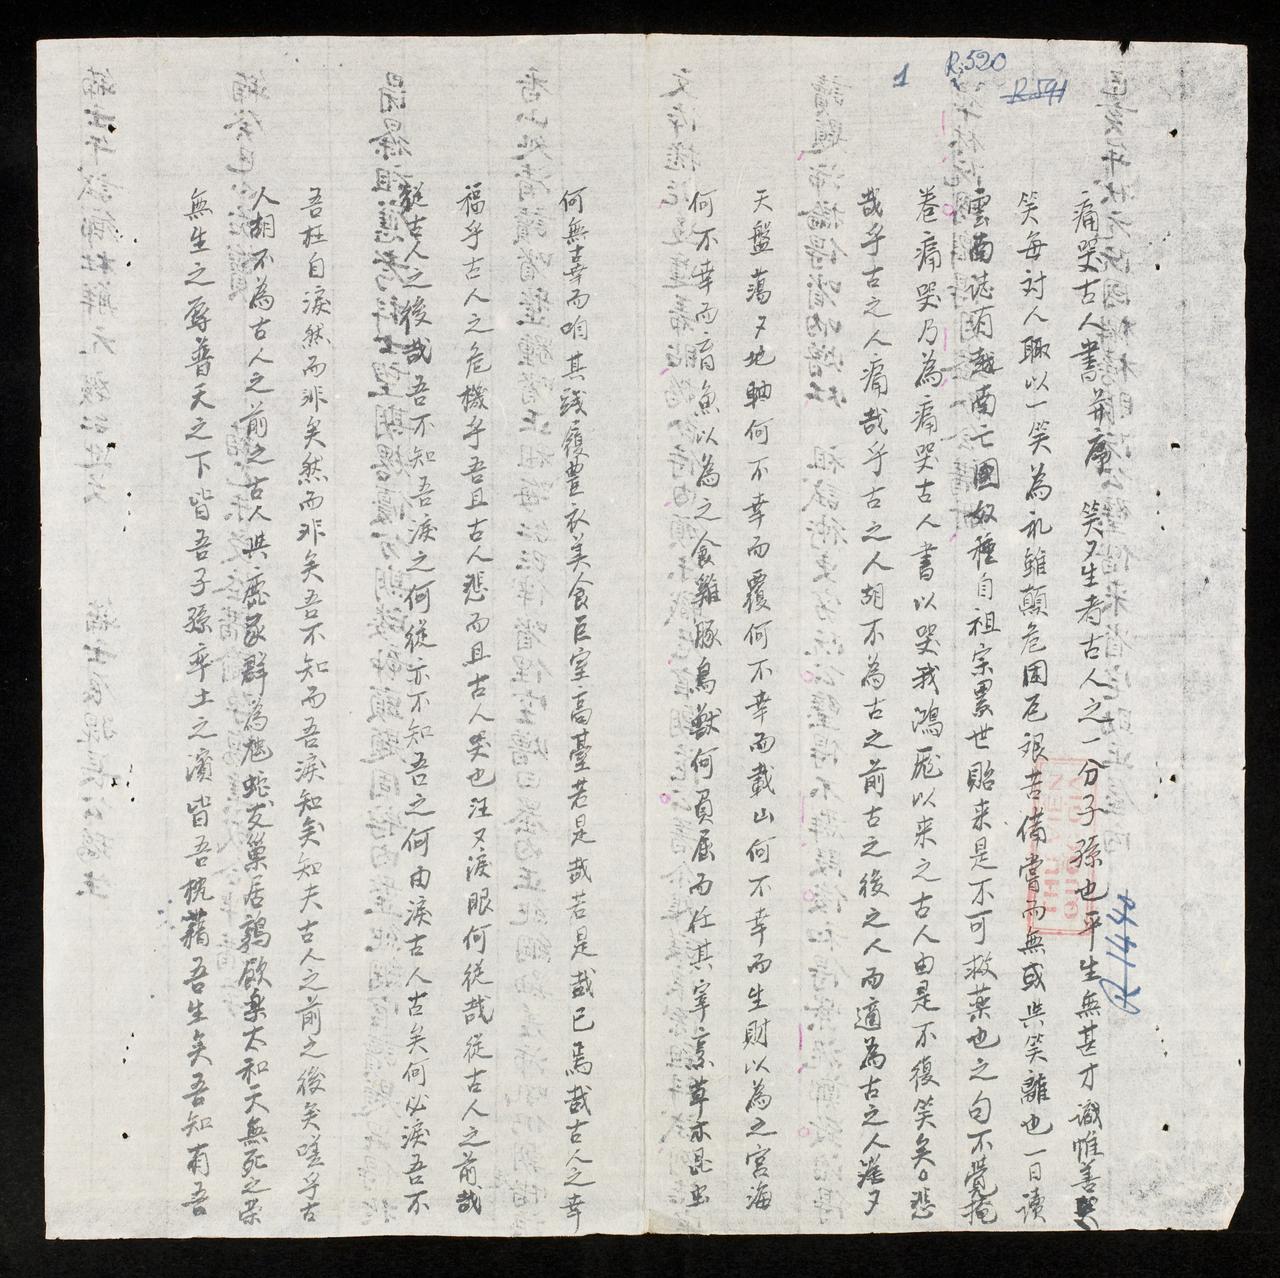 1
R.520
R.591
R 1494
痛哭古人書并序 笑〻生者古人之一分子孫也平生無甚才識惟善
笑每対人輙以一笑為礼雖顛危困厄艰苦備嘗而無或與笑離也一日讀
雲南誌有越南亡國奴種自祖宗累世貽来是不可救薬也之句不覺掩
卷痛哭乃為痛哭古人書以哭我鴻厖以来之古人由是不復笑矣悲
哉乎古之人痛哉乎古之人胡不為古之前古之後之人而適為古之人茫〻
天盤蕩〻地軸何不幸而覆何不幸而載山何不幸而生財以為之宮海
何不幸而育魚以為之食雞豚鳥獣何負屈而任其宰烹草木昆虫
何無辜而咱其踐履豊衣美食巨室高臺若是哉若是哉已焉哉古人之幸
福乎古人之危機乎吾且古人悲而且古人哭也汪〻淚眼何従哉従古人之前哉
従古人之後哉吾不知吾淚之何従亦不知吾之何由淚古人古矣何必淚吾不
吾枉自淚然而非矣然而非矣吾不知而吾淚知矣知夫古人之前之後矣嗟乎古
人胡不為古人之前之古人與鹿豕群為虺蛇友巢居鶉飲楽太和天無死之荣
無生之辱普天之下皆吾子孫率土之濱皆吾枕藉吾生矣吾知有吾